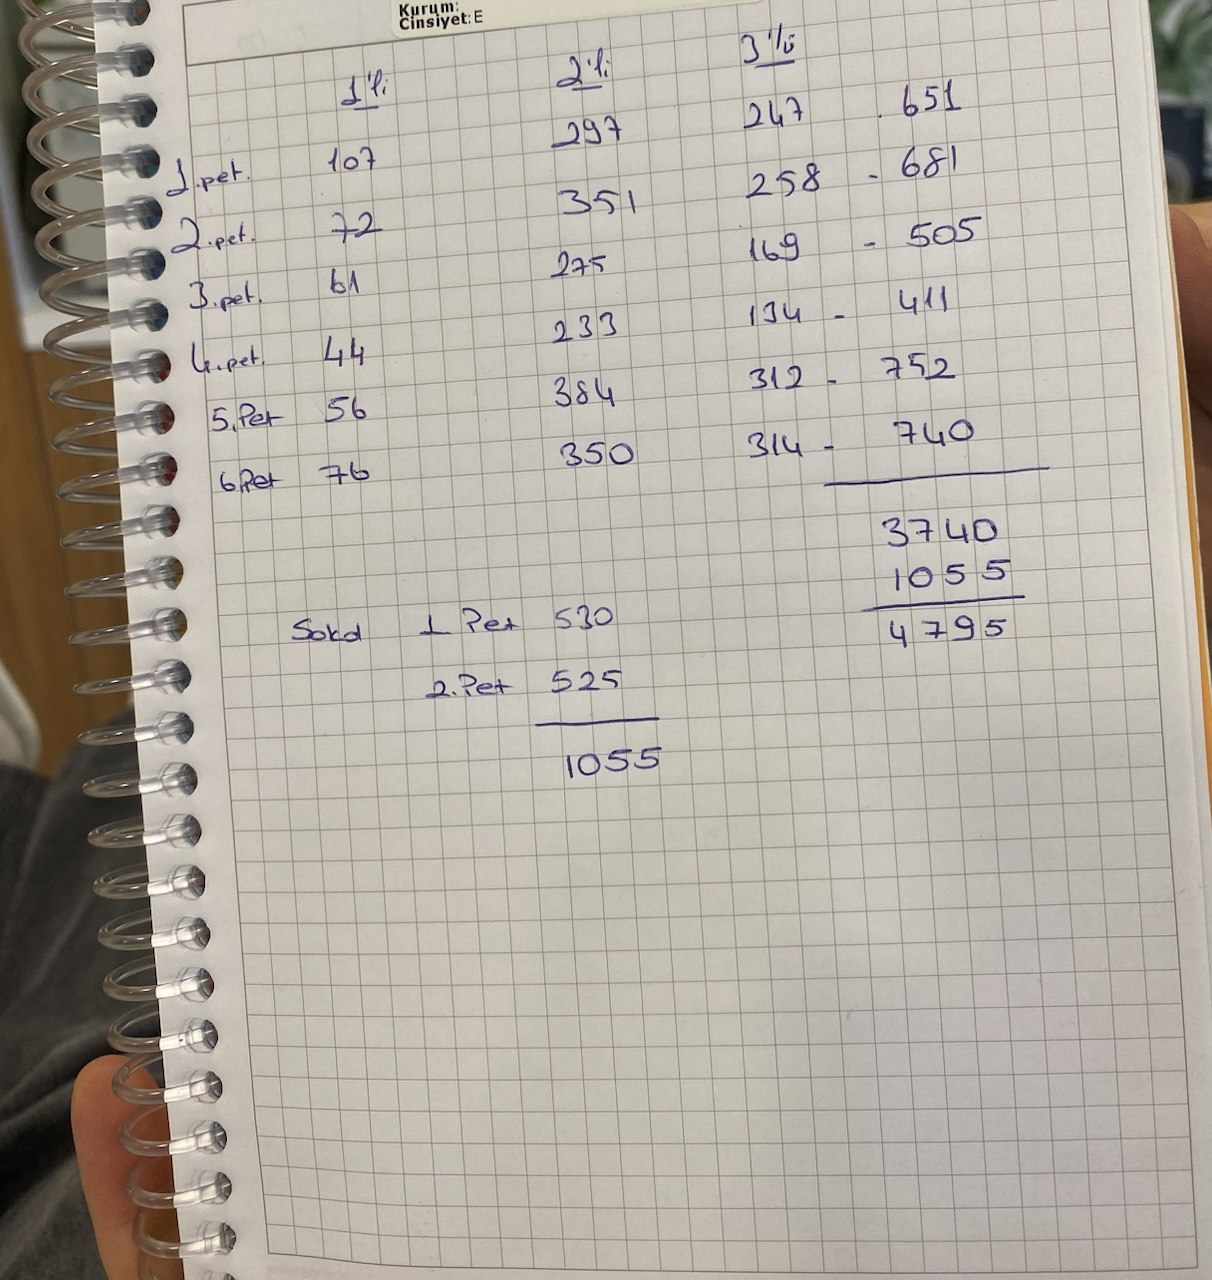 Kurum:
Cinsiyet:E
1'li 2'li 3'lü
1.pet. 107 297 247 . 651
2.pet. 72 351 258 - 681
3.pet. 61 275 169 - 505
4.pet. 44 233 134 - 411
5.Pet 56 384 312 - 752
6.Pet 76 350 314 - 740
3740
1055
4795
1 Pet 530
2.Pet 525
1055